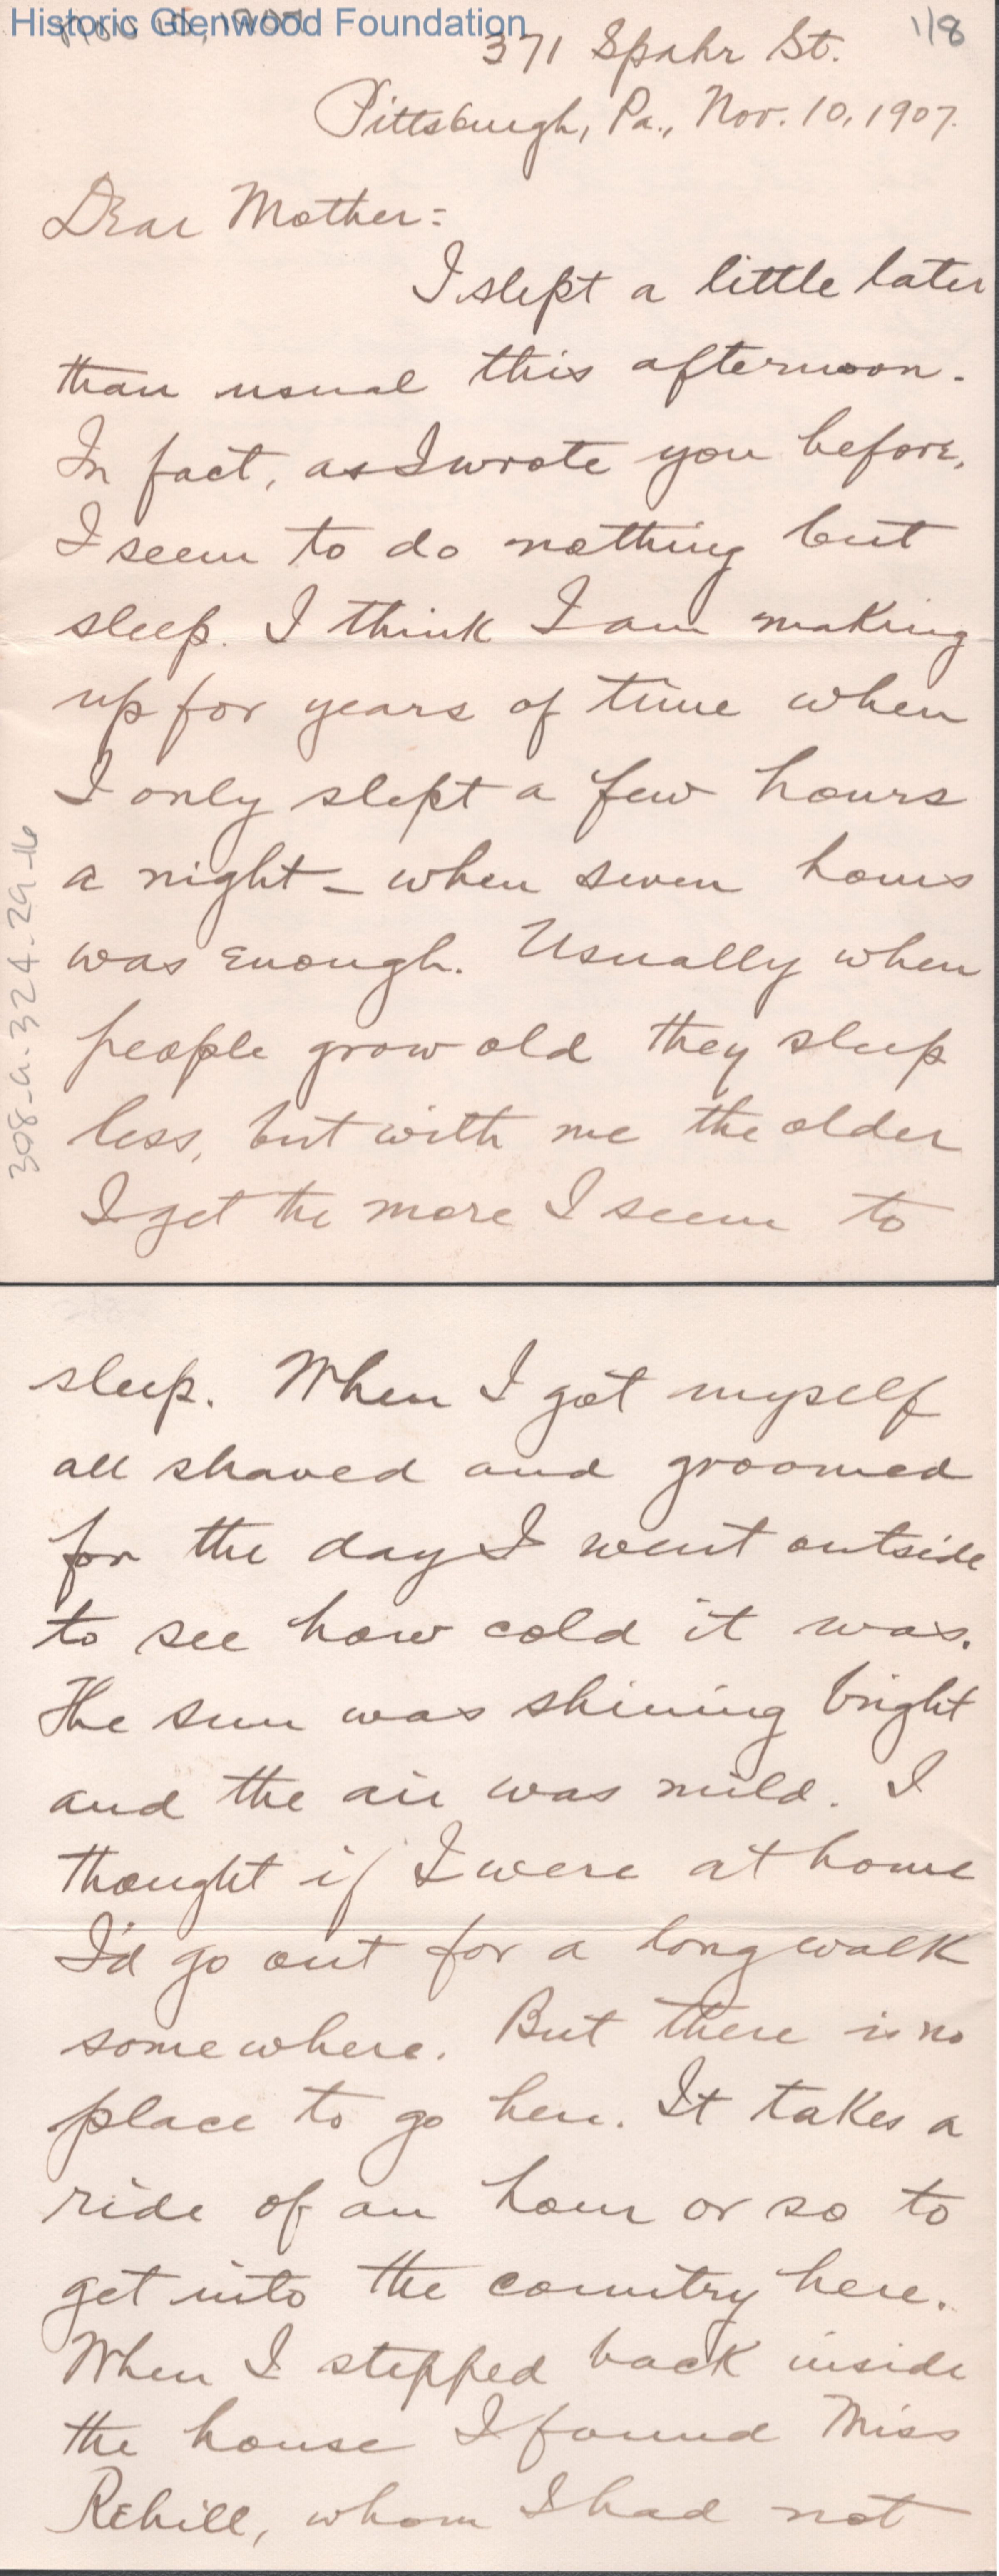 Historic Glenwood Foundation
1/8
371 Spahr St.
Pittsburgh, Pa., Nov. 10, 1907.
Dear Mother:
I slept a little later
than usual this afternoon.
In fact, as I wrote you before,
I seem to do nothing but
sleep. I think I am making
up for years of time when
I only slept a few hours
a night – when seven hours
was enough. Usually when
people grow old they sleep
less, but with me the older
I get the more I seem to
308-a.324.29-16
sleep. When I got myself
all shaved and groomed
for the day I went outside
to see how cold it was.
The sun was shining bright
and the air was mild. I
thought if I were at home
I'd go out for a long walk
somewhere. But there is no
place to go here. It takes a
ride of an hour or so to
get into the country here.
When I stepped back inside
the house I found Miss
Rehill, whom I had not